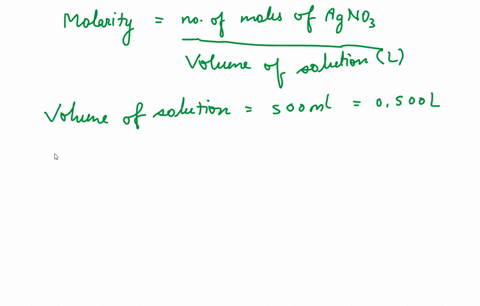 Molarity = no. of moles of AgNO3
Volume of solution (L)
Volume of solution = 500ml = 0.500L